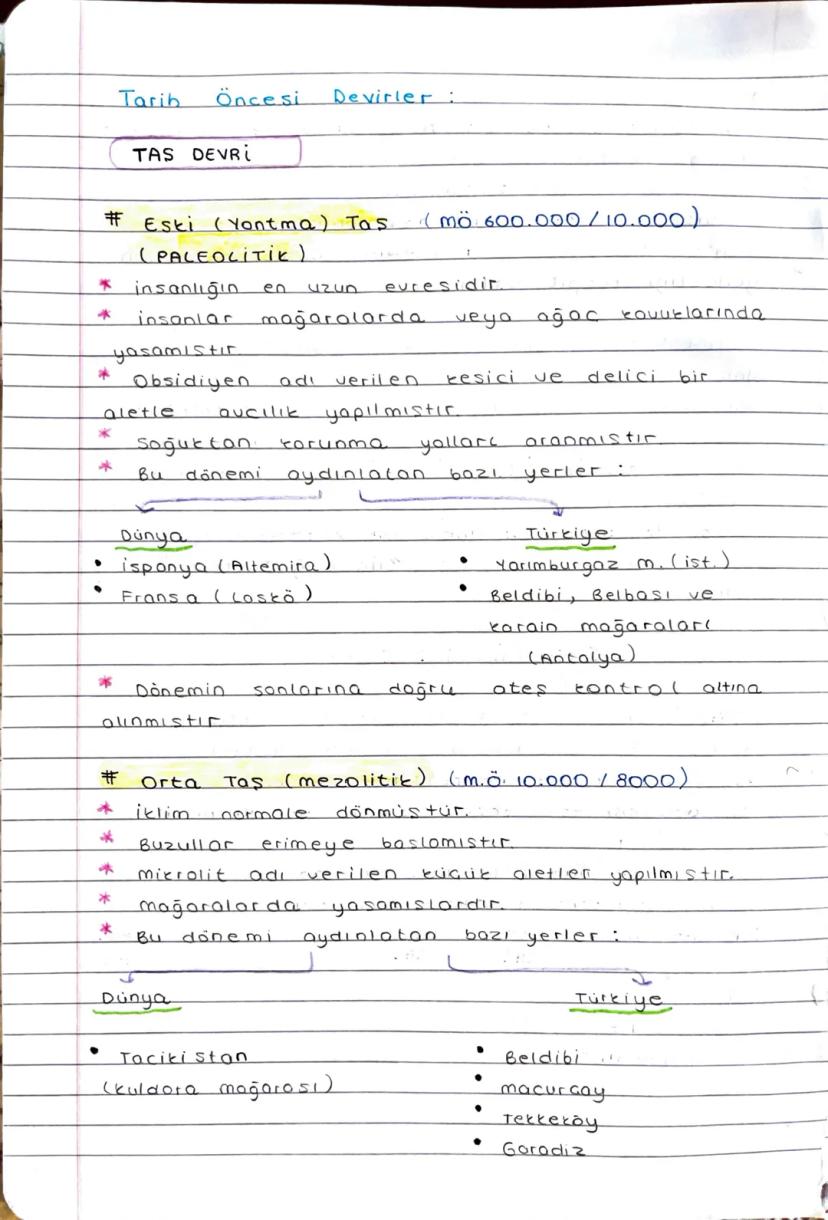 Tarih Öncesi Devirler :
TAS DEVRİ
# Eski (Yontma) Tas (mö 600.000 / 10.000)
(PALEOLİTİK)
* insanlığın en uzun evresidir.
* insanlar mağaralarda veya ağac kovuklarında
yasamıstır.
* Obsidiyen adı verilen kesici ve delici bir
aletle avcılık yapılmıstır.
* Soğuktan korunma yolları aranmıstır.
* Bu dönemi aydınlatan bazı yerler :
Dünya Türkiye
• ispanya (Altemira) • Yarımburgaz m. (ist.)
• Fransa (Laskö) • Beldibi, Belbası ve
karain mağaraları
(Antalya)
* Dönemin sonlarına doğru ateş kontrol altına
alınmıstır.
# Orta Taş (mezolitik) (m.ö. 10.000 / 8000)
* iklim normale dönmüstür.
* Buzullar erimeye baslamıstır.
* mikrolit adı verilen kücük aletler yapılmıstır.
* mağaralarda yasamıslardır.
* Bu dönemi aydınlatan bazı yerler :
Dünya Türkiye
• Tacikistan • Beldibi
(kuldara mağarası) • macurcay
• Tekkeköy
• Goradiz